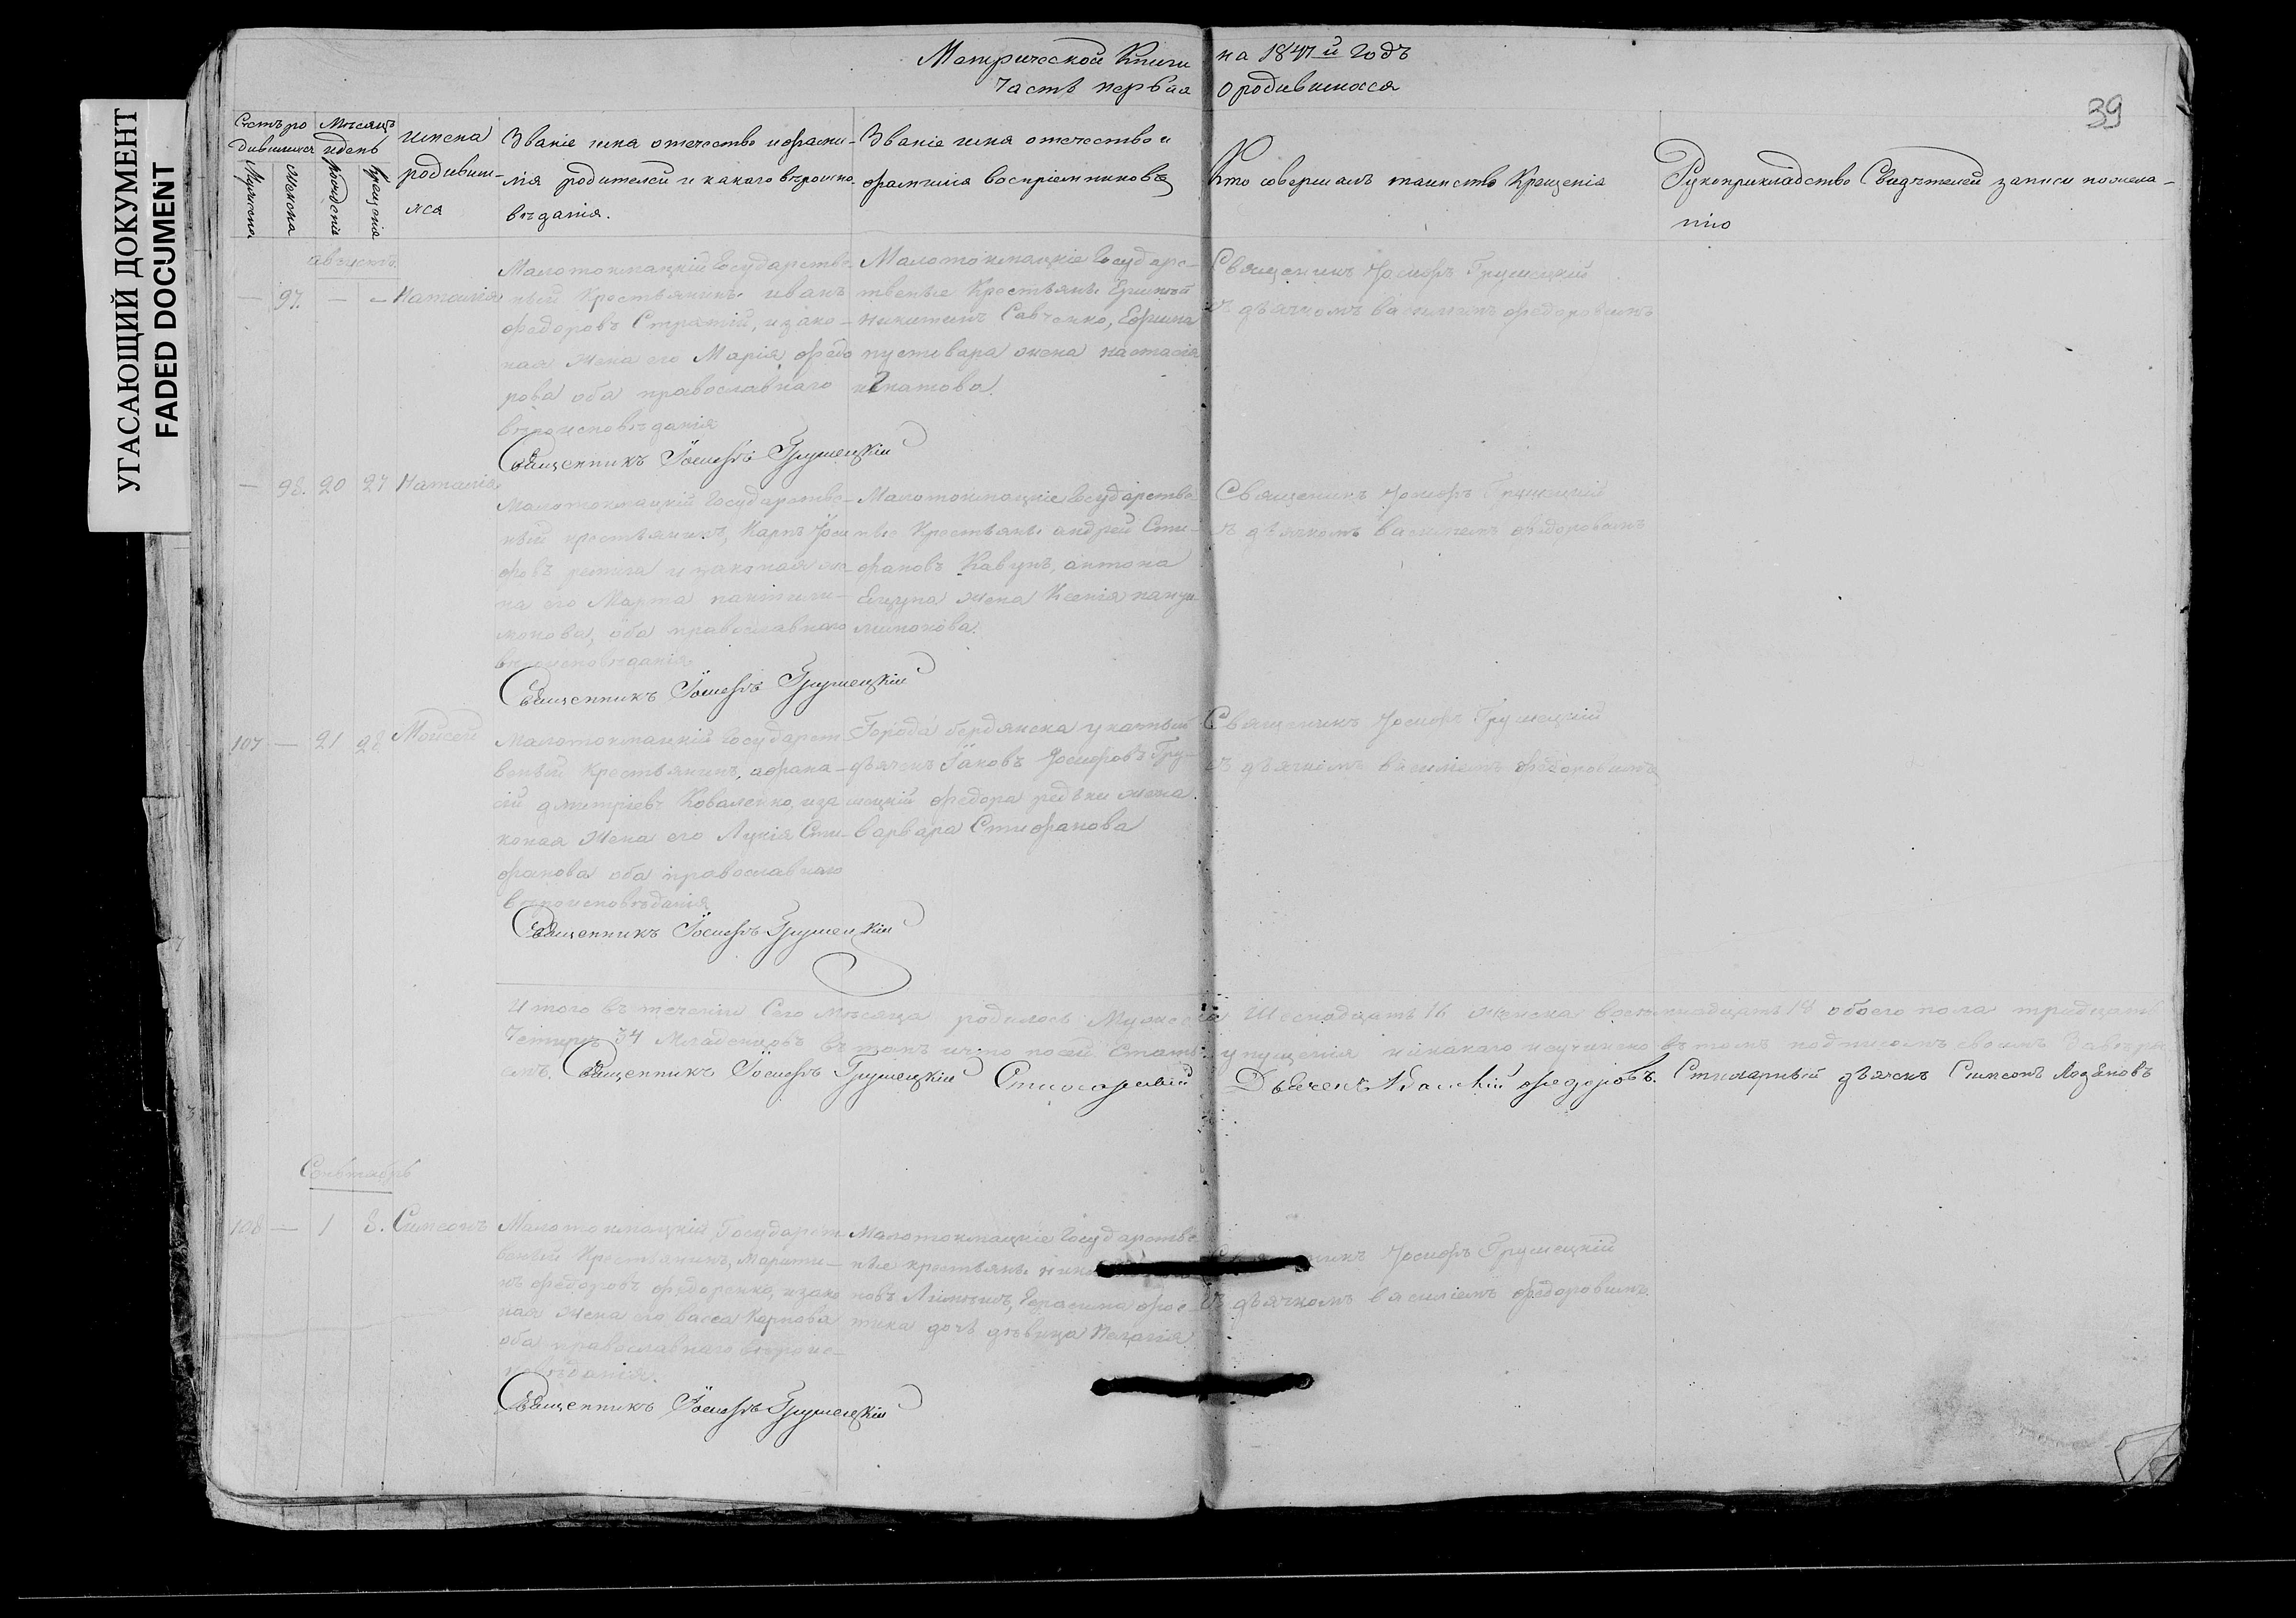 УГАСАЮЩИЙ ДОКУМЕНТ
FADED DOCUMENT
Метрической Книги на 1847й годъ
Часть первая о родившихся
39
Счетъ ро
дившихся
Мужеска
Женска
Мѣсяцъ
и день
Рожденія
Крещенія
имена
родивши-
хся
Званіе имя отечество и фами-
лія родителей и какого вѣроиспо-
вѣданія.
Званіе имя отечество и
фамилія воспріемниковъ
Кто совершалъ таинство Крещенія
Рукоприкладство Свидѣтелей записи по жела-
нію
августъ
— 97. — — Наталія
Малотокмацкій Государстве-
ный Крестьянинъ иванъ
федоровъ Стратій, и зако-
ная жена его Марія федо
рова оба православнаго
вѣроисповѣданія
Малотокмацкіе Государс-
твеные Крестьяне
никитинъ Савченко, Ефима
жена настасія
игнатова.
Священикъ Іосифъ Грушецкій
съ дьячкомъ василіемъ федоровымъ
Священникъ Іосифъ Грушецкій
— 98. 20 27 Наталія
Малотокмацкій Государстве-
ный крестьянинъ, Карпъ Іоси
фовъ и законая же-
на его Марта пантили-
монова, оба православнаго
вѣроисповѣданія
Малотокмацкіе Государстве
ные Крестьяне андрей Сти-
фановъ Кавунъ, антона
жена Ксенія
Священикъ Іосифъ Грушецкій
съ дьячкомъ василіемъ федоровымъ
Священникъ Іосифъ Грушецкій
107 — 21 28 Моисей
Малотокмацкій Государст
веный Крестьянинъ, афана-
сій дмитріевъ Коваленко, и за
коная жена его Лукія Сти-
фанова оба православнаго
вѣроисповѣданія
Города бердянска указный
дьячекъ Іаковъ Іосифовъ Гру-
шецкій федора редьки жена
варвара Стифанова
Священикъ Іосифъ Грушецкій
съ дьячкомъ василіемъ федоровымъ
Священникъ Іосифъ Грушецкій
Итого въ теченіи Сего мѣсяца родилось Мужеска Шеснадцать 16 женска восемнадцать 18 обоего пола тридцать
Четыре 34 Младенцовъ въ томъ что по сей Статьи упущенія никакого неучинено въ томъ подписомъ своимъ
Священникъ Іосифъ Грушецкій Стихарный Дьячекъ Василій федоровъ. Стихарный дьячекъ Симеонъ Лозановъ
Сентябрь
108 — 1 8. Симеонъ
Малотокмацкій Государст
веный Крестьянинъ, Марти-
нъ федоровъ федоренко, и зако
ная жена его васса Карпова
оба православнаго вѣроис-
повѣданія.
Малотокмацкіе Государстве
ные крестьяне
новъ
дочь дѣвица Пелагія
Іосифъ Грушецкій
съ дьячкомъ василіемъ федоровымъ.
Священникъ Іосифъ Грушецкій